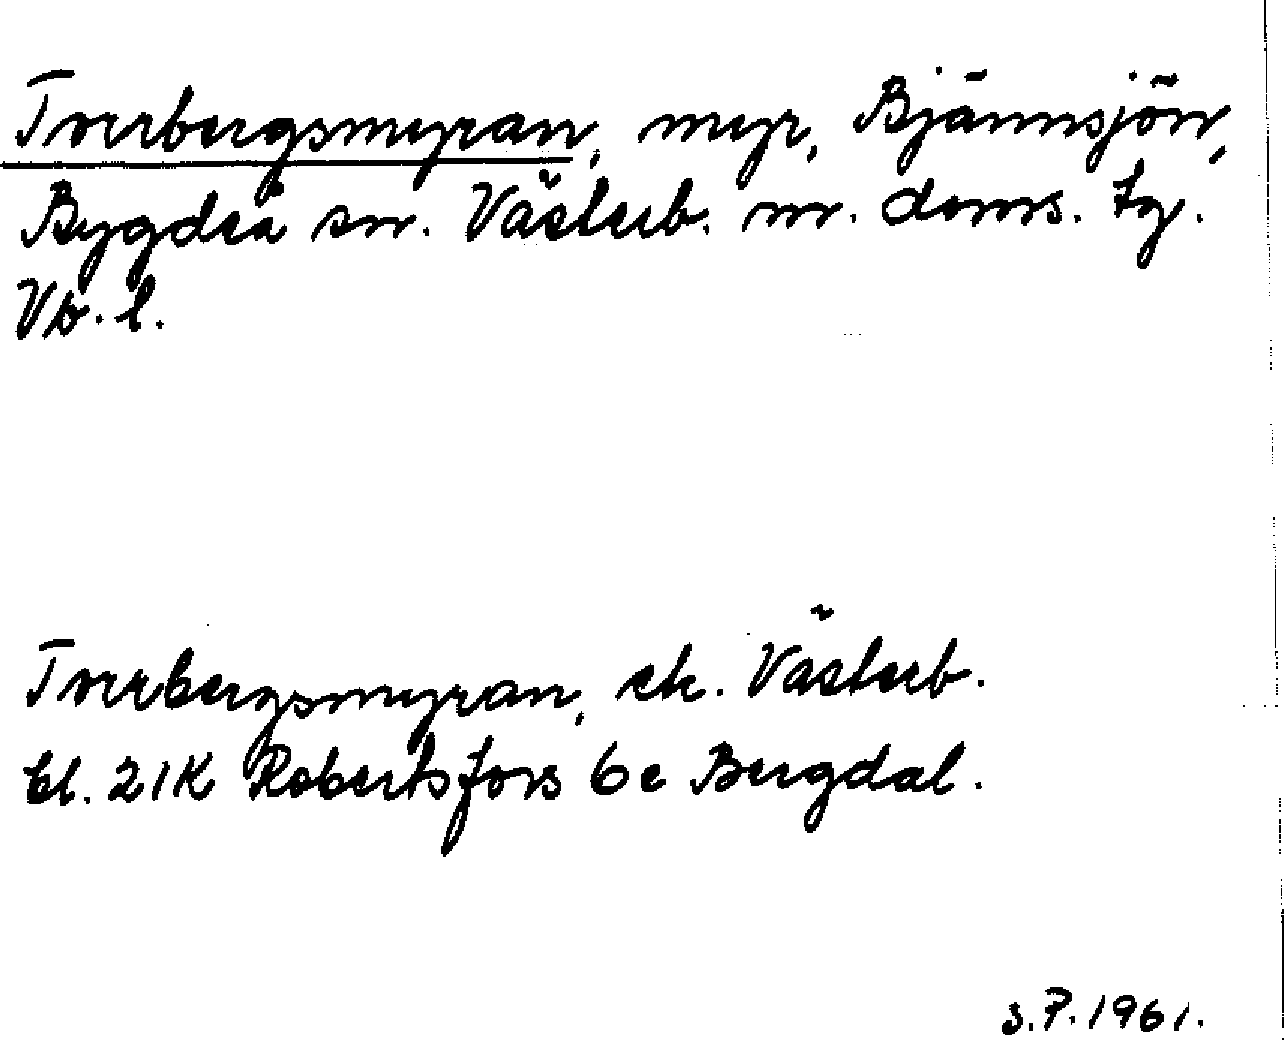 Tverbergsmyran, myr, Bjännsjön,
Bygdeå sn. Västerb. n. doms. tg.
Vb. l.
Tverbergsmyran, ek. Västerb.
bl. 21K Robertsfors 6e Bergdal.
S.P. 1961.